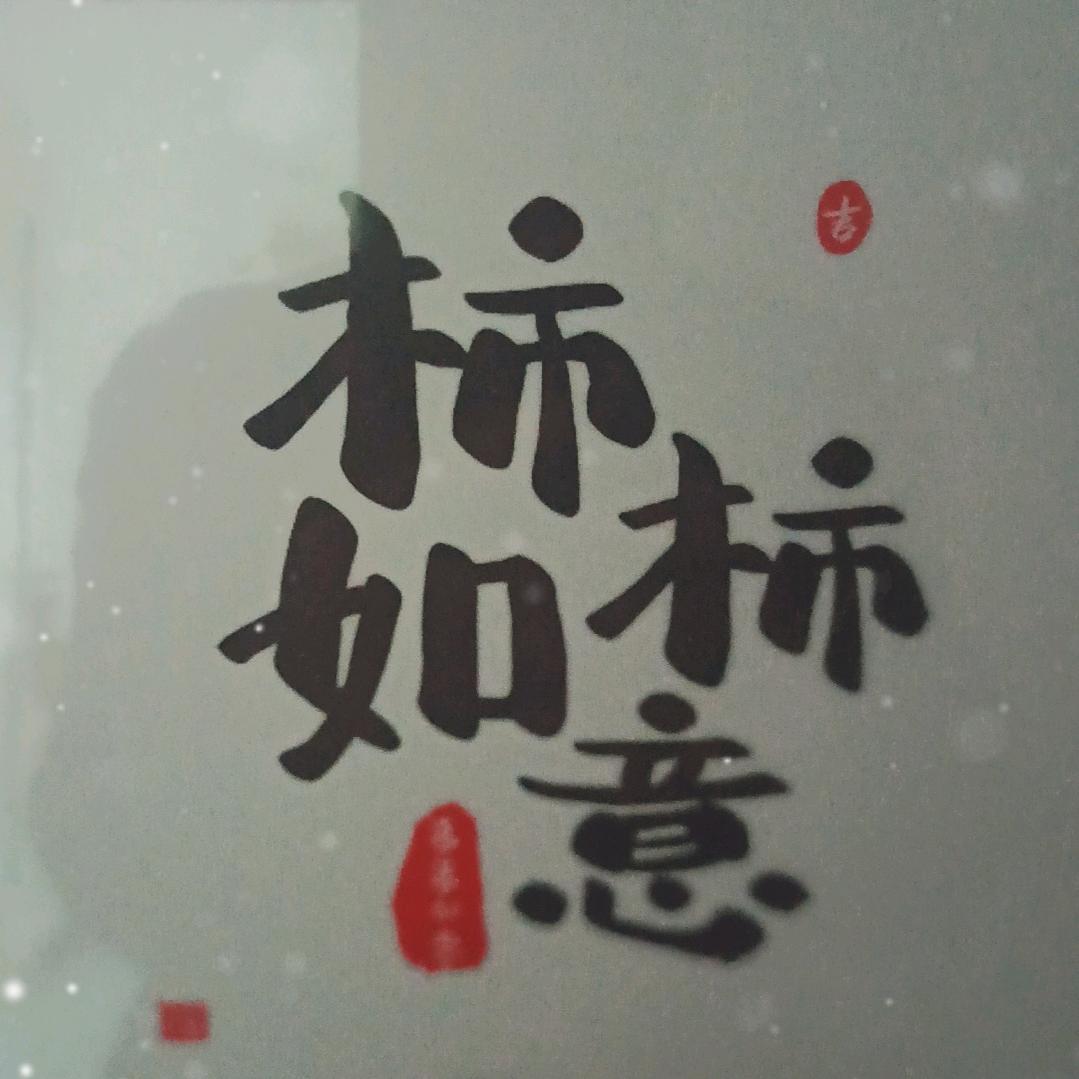 吉
柿柿
如意